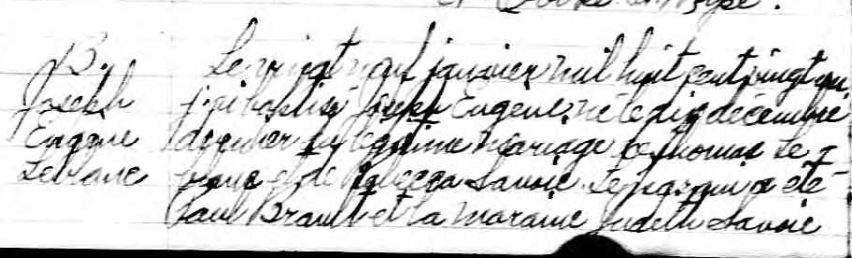 B.
Joseph
Eugene
Leblanc
Le vingt neuf janvier mil huit cent vingt un
j'ai baptisé Joseph Eugene né le dix décembre
dernier du légitime mariage de Thomas Le
blanc et de Rebecca Savoie. Le parrain a été
Paul Brault et la maraine Judith Savoie